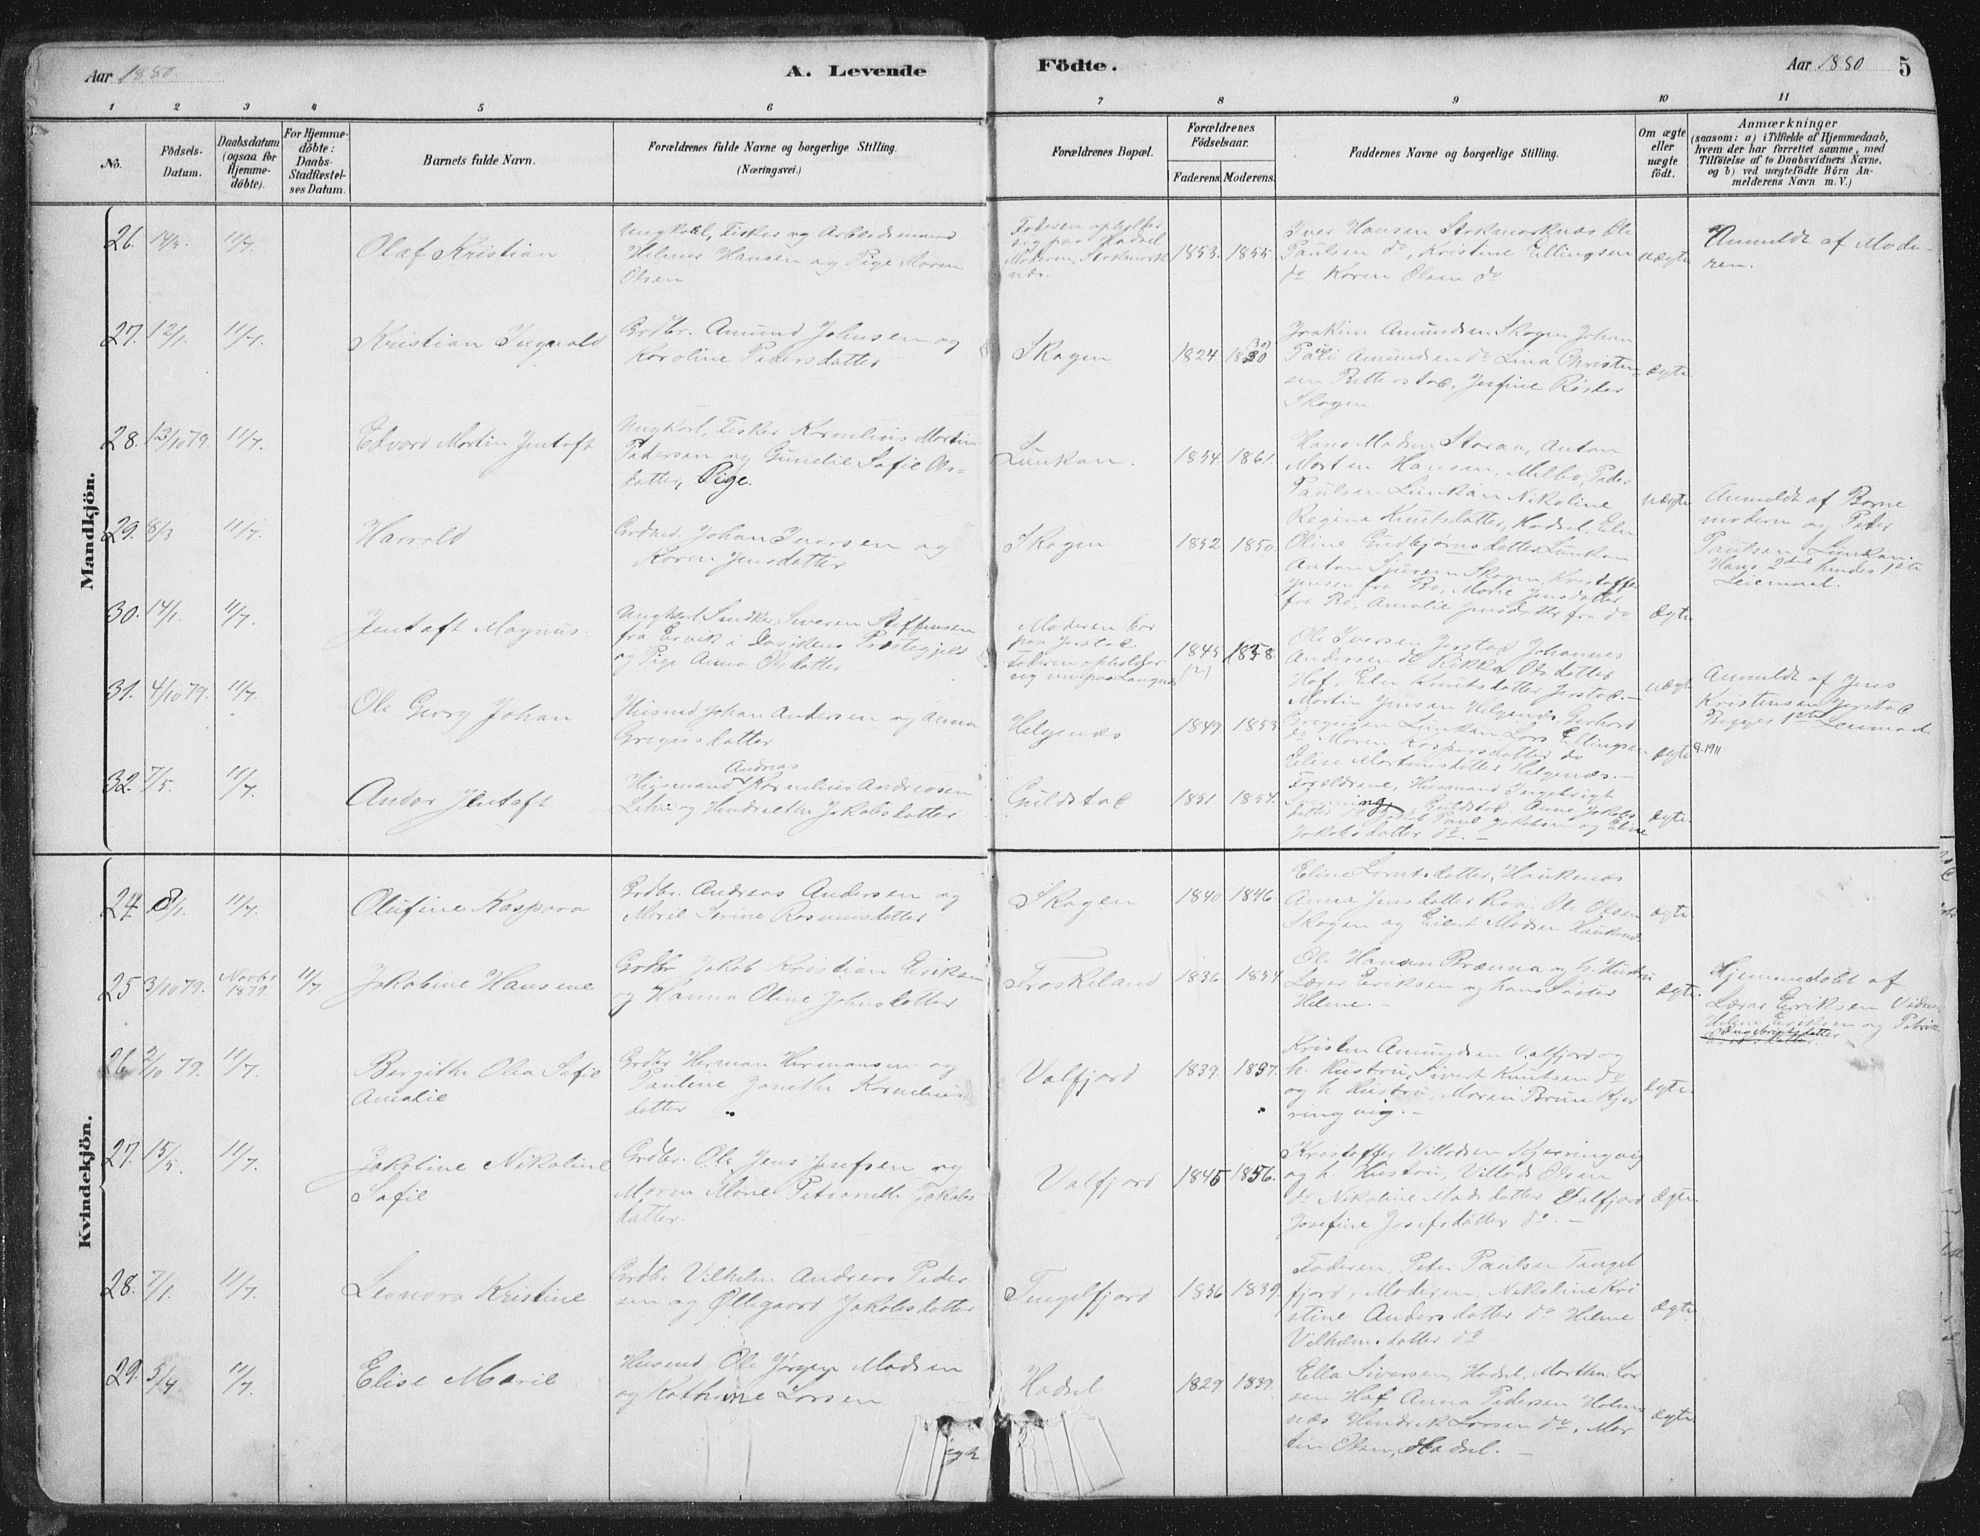 Aar 1880.
A. Levende
Födte.
Aar 1880
5
1 2 3 4 5 6 7 8 9 10 11
No.
Födsels-
Datum.
Daabsdatum
(ogsaa for
Hjemme-
döbte).
For Hjemme-
döbte:
Daabs-
Stadfæstel-
ses Datum.
Barnets fulde Navn.
Forældrenes fulde Navne og borgerlige Stilling.
(Næringsvei.)
Forældrenes Bopæl.
Forældrenes
Födselsaar.
Faderens.
Moderens.
Faddernes Navne og borgerlige Stilling.
Om ægte
eller
uægte
födt.
Anmærkninger
(saasom: a) i Tilfælde af Hjemmedaab,
hvem der har forrettet samme, med
Tilföielse af to Daabsvidners Navne,
og b) ved uægtefödte Börn An-
melderens Navn m. V.)
Mandkjön.
26.
11/7.
Olaf Kristian
Ungkarl, Fisker og Arbeidsmand
Helmer Hansen og Pige Maren
Olsen
Faderen opholder
sig paa Hadsel
Moderen, Stokmark
næs.
1853. 1855.
Iver Hansen Stokmarknæs Ole
Paulsen do, Kristine Ellingsen
do, Karen Olsen do
uægte
Anmeldt af Mode-
ren.
27. 12/1. 11/7.
Kristian
Grdbr. Amund Johnsen og
Karoline Pedersdatter
Skagen
1824
Joakim Amundsen Skagen Johan
Amundsen do Lina Christen-
sen Jesfine Røsder
Skagen.
ægte
28. 13/10 79. 11/7.
Edvard Martin Jentoft
Ungkarl, Fisker Kornelius Martin
Pedersen og Gunelie Sofie Ols-
datter, Pige.
Lunkan.
1854. 1861.
Hans Madsen Staran, Anton
Morten Hansen, Melbo, Peder
Paulsen Lunkan Nikoline
Regine Knutsdatter, Hadsel, Elen
Oline datter Lunkan
uægte
Anmeldt af Barne
moderen og Peder
Paulsen Lunkan.
Hans 2det hendes 1ste
Leiemaal.
29. 8/3 11/7.
Harrald
Johan Iversen og
Karen Jensdatter
Skagen
1852 1850.
Anton Skagen, Kristoffer
Jensen fra Rø, Marie Jensdatter
fra Rø, Amalie Jensdatter fra do
ægte
30. 14/1. 11/7.
Jentoft Magnus.
Ungkarl Severen Steffensen
fra Ervik i Davikens Præstegjeld
og Pige Anna Olsdatter
Moderen bor
paa Jerstad
Faderen opholder
sig
1845 1858.
(?)
Ole Iversen Jerstad Johannes
Andersen do Rikka Olsdatter
Haf, Elen Knutsdatter Jerstad.
uægte
Anmeldt af Jens
Kristensen Jerstad
Begges 1ste Leiemaal.
31. 4/10 79. 11/7.
Ole Georg Johan
Husmd Johan Andersen og Anna
Gregusdatter
Helgenæs
1849. 1853.
Martin Jensen Helgenæs, Gerhard
Gregusen Lunkan Lars Ellingsen
do Maren Kaspersdatter do
Elise Mortensdatter Helgenæs.
ægte
9.1911
32. 7/5. 11/7.
Andor Jentoft
Andreas
Husmand Kornelius Andreasen
og Jakobsdatter
Guldstad
1851 1854.
Forældrene, Husmand Ingebrigt
Guldstad, Anne Jakobs
datter do Paul Jakobsen og Eline
Jakobsdatter do.
ægte
Kvindekjön.
24. 8/1. 11/7.
Olufine Kaspara
Grdbr. Andreas Andersen og
Marie Rasmusdatter
Skagen
1840 1846.
Eline Lorntsdatter, Haukenæs
Anna Jensdatter Roa, Ole Olsen
Skagen og Eilert Madsen Haukenæs
ægte
25 3/10 79. Novbr
1879. 11/7.
Jakobine Hansene
Grdbr Jakob Kristian Eriksen
og Hanna Oline Johnsdatter
Froskeland
1836 1854
Ole Hansen Brænna og h. Hustru
Lærer Eriksen og hans Søster
Helene.
ægte.
Hjemmedøbt af
Lærer Eriksen Vidner
Helene Eriksen og
26. 2/10 79. 11/7.
Bergithe Olea Sofie
Amalie
Grdbr Herman Hermansen og
Pauline Janethe Kornelius
datter
Valfjord
1839. 1837.
Kristen Amundsen Valfjord og
h. Hustru, Sivert Knutsen do
og h Hustru, Maren Brun Kjer
ringvig.
ægte.
27. 15/5. 11/7.
Jakobine Nikoline
Sofie
Grdbr. Ole Jens Josefsen og
Maren Marie Petranelle Jakobs
datter.
Valfjord
1845 1856.
Kristoffer Villadsen Kjerringvig
og h Hustru, Villads Olsen
do Nikoline Madsdatter Valfjord
Josefine Josefsdatter do.
ægte.
28. 7/1. 11/7.
Leonora Kristine
Grdbr Vilhelm Andreas Peder
sen og Øllegaard Jakobsdatter
Tengelfjord
1836 1839.
Faderen, Peter Paulsen Tengel
fjord, Moderen, Nikoline Kri
stine Andersdatter do Helene
Vilhelmsdatter do
ægte.
29. 5/4 11/7.
Elise Marie
Husmd Ole Jørgen Madsen
og Kathrine Larsen
Hadsel
1829 1839.
Ella Siversen, Hadsel, Marthe Lar
sen Haf Anna Pedersen Holm
næs Hendrik Larsen do, Mar
tin Olsen, Hadsel.
ægte